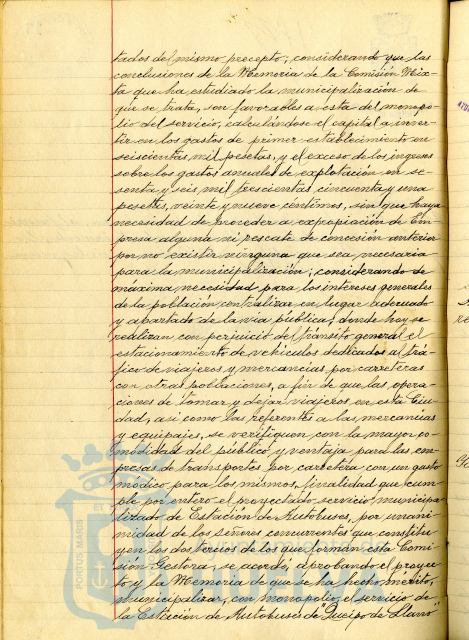 tados del mismo precepto, considerando que las
conclusiones de la Memoria de la Comisión Mix-
ta que ha estudiado la municipalización de
que se trata, son favorables a esta del monopo-
lio del servicio, calculándose el capital a inver-
tir en los gastos de primer establecimiento en
seiscientas mil pesetas, y el exceso de los ingresos
sobre los gastos anuales de explotación en se-
senta y seis mil trescientas cincuenta y una
pesetas, veinte y nueve céntimos, sin que haya
necesidad de proceder a expropiación de Em-
presa alguna ni rescate de concesión anterior
por no existir ninguna que sea necesaria
para la municipalización; considerando de
máxima necesidad para los intereses generales
de la población centralizar en lugar adecuado
y apartado de la vía pública, donde hoy se
realizan con perjuicio del tránsito general el
estacionamiento de vehículos dedicados al trá-
fico de viajeros y mercancías por carreteras
con otras poblaciones, a fin de que las opera-
ciones de tomar y dejar viajeros en esta Ciu-
dad, así como las referentes a las mercancías
y equipajes, se verifiquen con la mayor co-
modidad del público y ventaja para las em-
presas de transportes por carretera con un gasto
módico para los mismos, finalidad que cum-
ple por entero el proyectado servicio municipa-
lizado de Estación de Autobuses, por unani-
midad de los señores concurrentes que constitu-
yen los dos tercios de los que forman esta Comi-
sión Gestora, se acordó, aprobando el proyec-
to y la Memoria de que se ha hecho mérito,
municipalizar, con monopolio, el servicio de
la Estación de Autobuses de "Queipo de Llano"
PORTUS MARIS